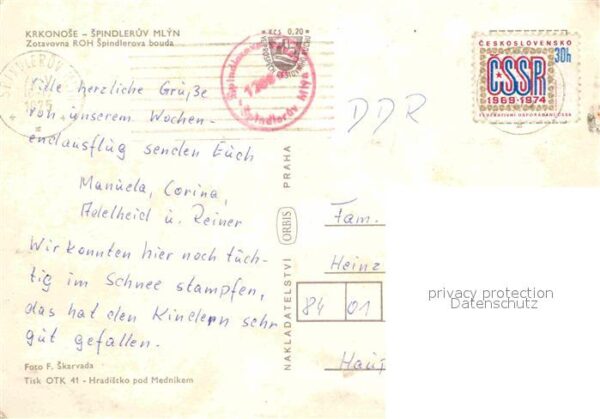 KRKONOŠE – ŠPINDLERŮV MLÝN
Zotavovna ROH Špindlerova bouda
Kčs 0,20
Viele herzliche Grüße
von unserem Wochen-
endausflüg senden Eüch
Manüela, Corina,
Adelheid ü. Reiner
Wir konnten hier noch tüch-
tig im Schnee stampfen,
das hat den Kindern sehr
güt gefallen.
Foto F. Škarvada
Tisk OTK 41 - Hradišťko pod Medníkem
NAKLADATELSTVÍ ORBIS PRAHA
Špindlerův Mlýn
DDR
ČESKOSLOVENSKO
30h
ČSSR
1969-1974
FEDERATIVNÍ USPOŘÁDÁNÍ ČSSR
Fam.
Heinz
84 01
Haüp
privacy protection
Datenschutz